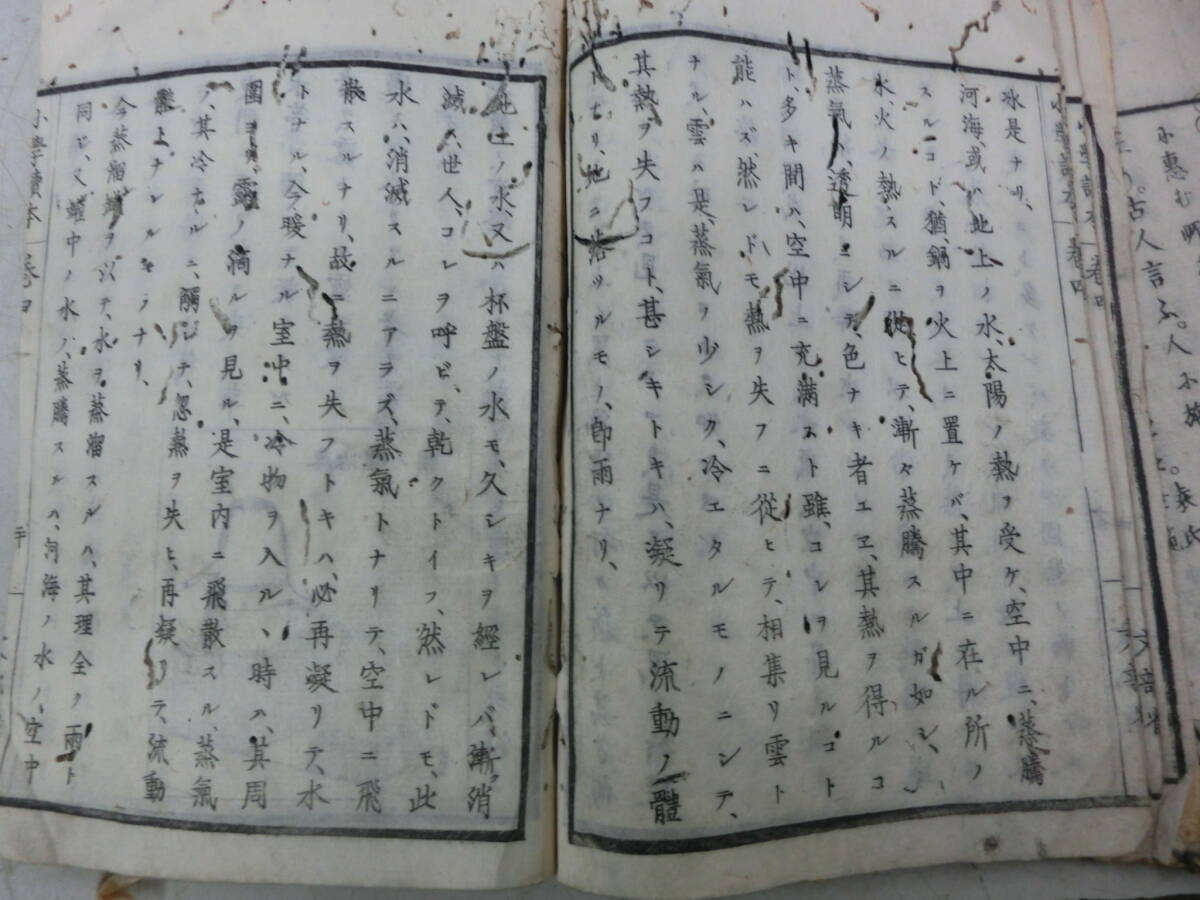 氷是ナリ、
河海、或ハ地上ノ水、太陽ノ熱ヲ受ケ、空中ニ、蒸騰
スルコト、猶、鍋ヲ火上ニ置ケバ、其中ニ在ル所ノ
水、火ノ熱スルニ從ヒテ、漸々蒸騰スルガ如シ、
蒸氣ハ、透明ニシテ、色ナキ者ユヱ、其熱ヲ得ルコ
ト、多キ間ハ、空中ニ充滿スト雖、コレヲ見ルコト
能ハズ、然レドモ、熱ヲ失フニ從ヒテ、相集リ雲ト
ナル、雲ハ是、蒸氣ノ少シク、冷エタルモノニシテ、
其熱ヲ失フコト、甚シキトキハ、凝リテ流動ノ體
トナリ、地ニ落ツルモノ、即雨ナリ、
地上ノ水、又ハ杯盤ノ水モ、久シキヲ經レバ、漸消
滅ス、世人、コレヲ呼ビテ、乾クトイフ、然レドモ、此
水ハ、消滅スルニアラズ、蒸氣トナリテ、空中ニ飛
散スルナリ、故ニ熱ヲ失フトキハ、必再凝リテ、水
トナル、今暖ナル室中ニ、冷物ヲ入ルヽ時ハ、其周
圍ニ、露ノ滴ルヲ見ル、是室内ニ飛散スル、蒸氣
ノ、其冷ナルニ、觸レテ、忽熱ヲ失ヒ、再凝リテ、流動
體トナレルモノナリ、
今蒸溜罐ヲ以テ、水ヲ蒸溜スルハ、其理全ク雨ト
同ジ、又罐中ノ水ノ、蒸騰スルハ、河海ノ水ノ、空中
小學讀本 卷四